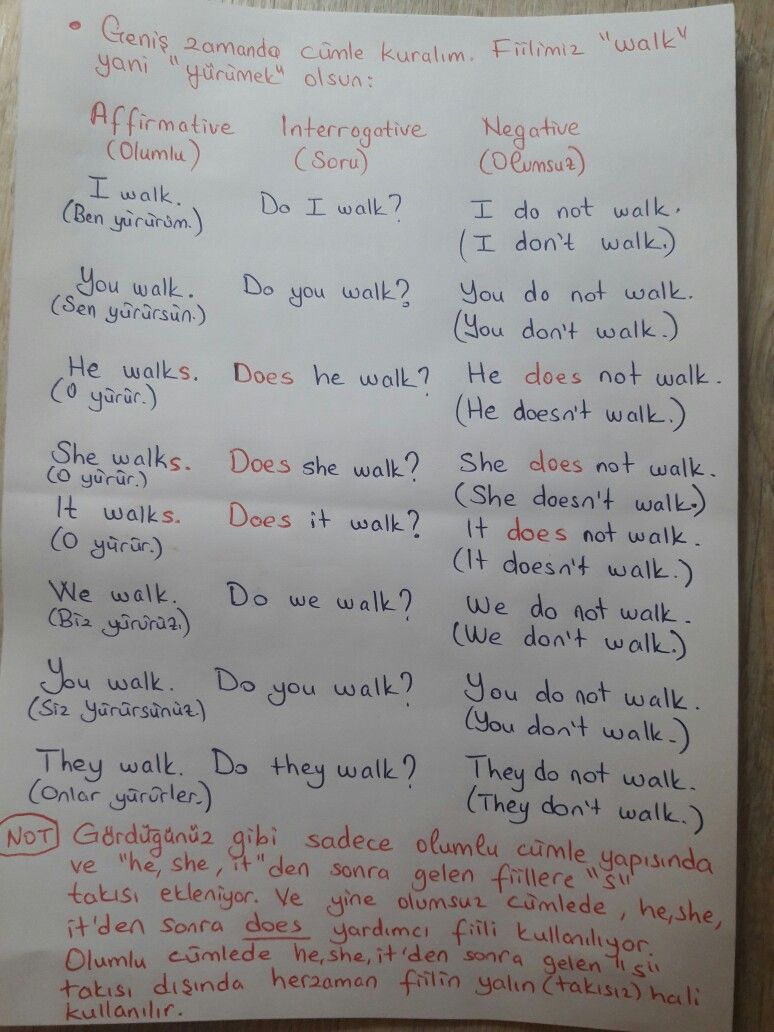 • Geniş zamanda cümle kuralım. Fiilimiz "walk"
yani "yürümek" olsun:
Affirmative Interrogative Negative
(Olumlu) (Soru) (Olumsuz)
I walk. Do I walk? I do not walk.
(Ben yürürüm.) (I don't walk.)
You walk. Do you walk? You do not walk.
(Sen yürürsün.) (You don't walk.)
He walks. Does he walk? He does not walk.
(O yürür.) (He doesn't walk.)
She walks. Does she walk? She does not walk.
(O yürür.) (She doesn't walk.)
It walks. Does it walk? It does not walk.
(O yürür.) (It doesn't walk.)
We walk. Do we walk? We do not walk.
(Biz yürürüz.) (We don't walk.)
You walk. Do you walk? You do not walk.
(Siz yürürsünüz.) (You don't walk.)
They walk. Do they walk? They do not walk.
(Onlar yürürler.) (They don't walk.)
NOT Gördüğünüz gibi sadece olumlu cümle yapısında
ve "he, she, it"den sonra gelen fiillere "s"
takısı ekleniyor. Ve yine olumsuz cümlede, he, she,
it'den sonra does yardımcı fiili kullanılıyor.
Olumlu cümlede he, she, it'den sonra gelen "s"
takısı dışında herzaman fiilin yalın (takısız) hali
kullanılır.